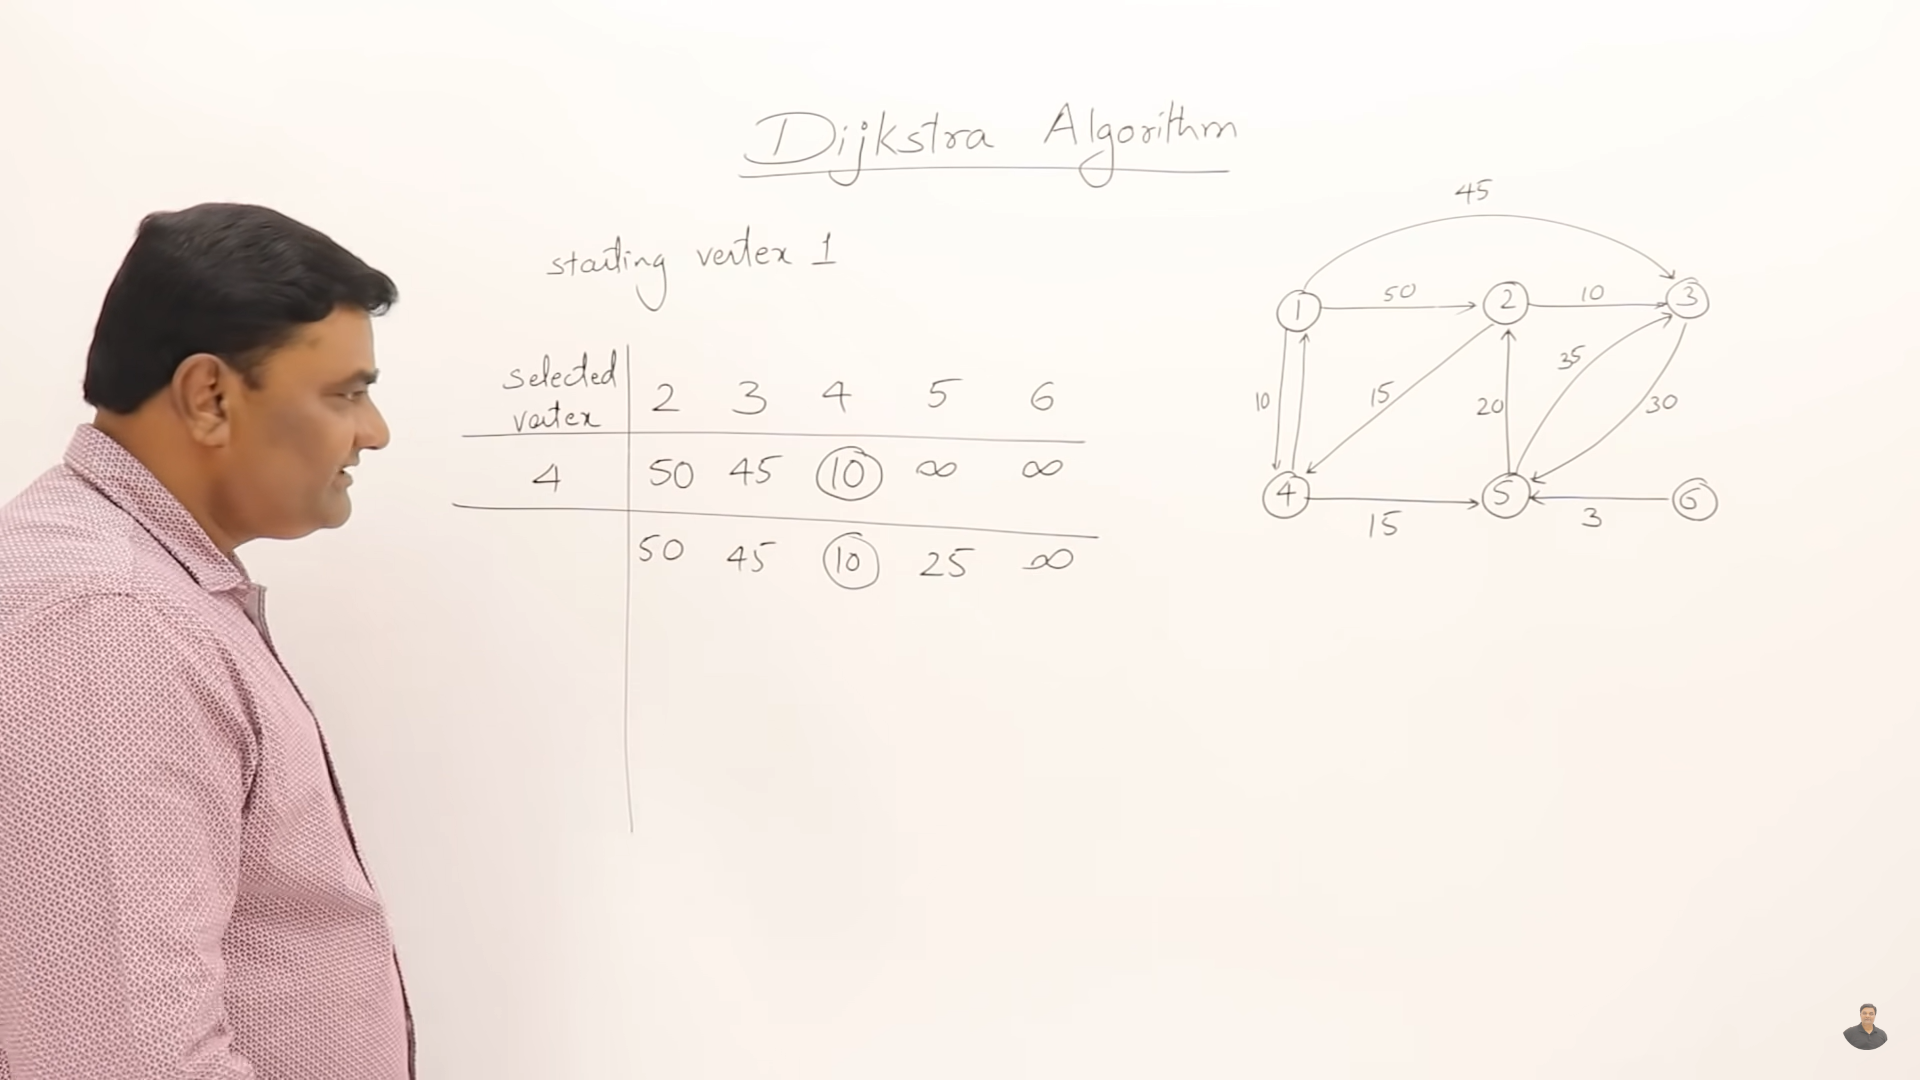 Dijkstra Algorithm
starting vertex 1
selected vertex 2 3 4 5 6
4 50 45 10 ∞ ∞
50 45 10 25 ∞
45
1 50 2 10 3
10 15 20 35 30
4 15 5 3 6